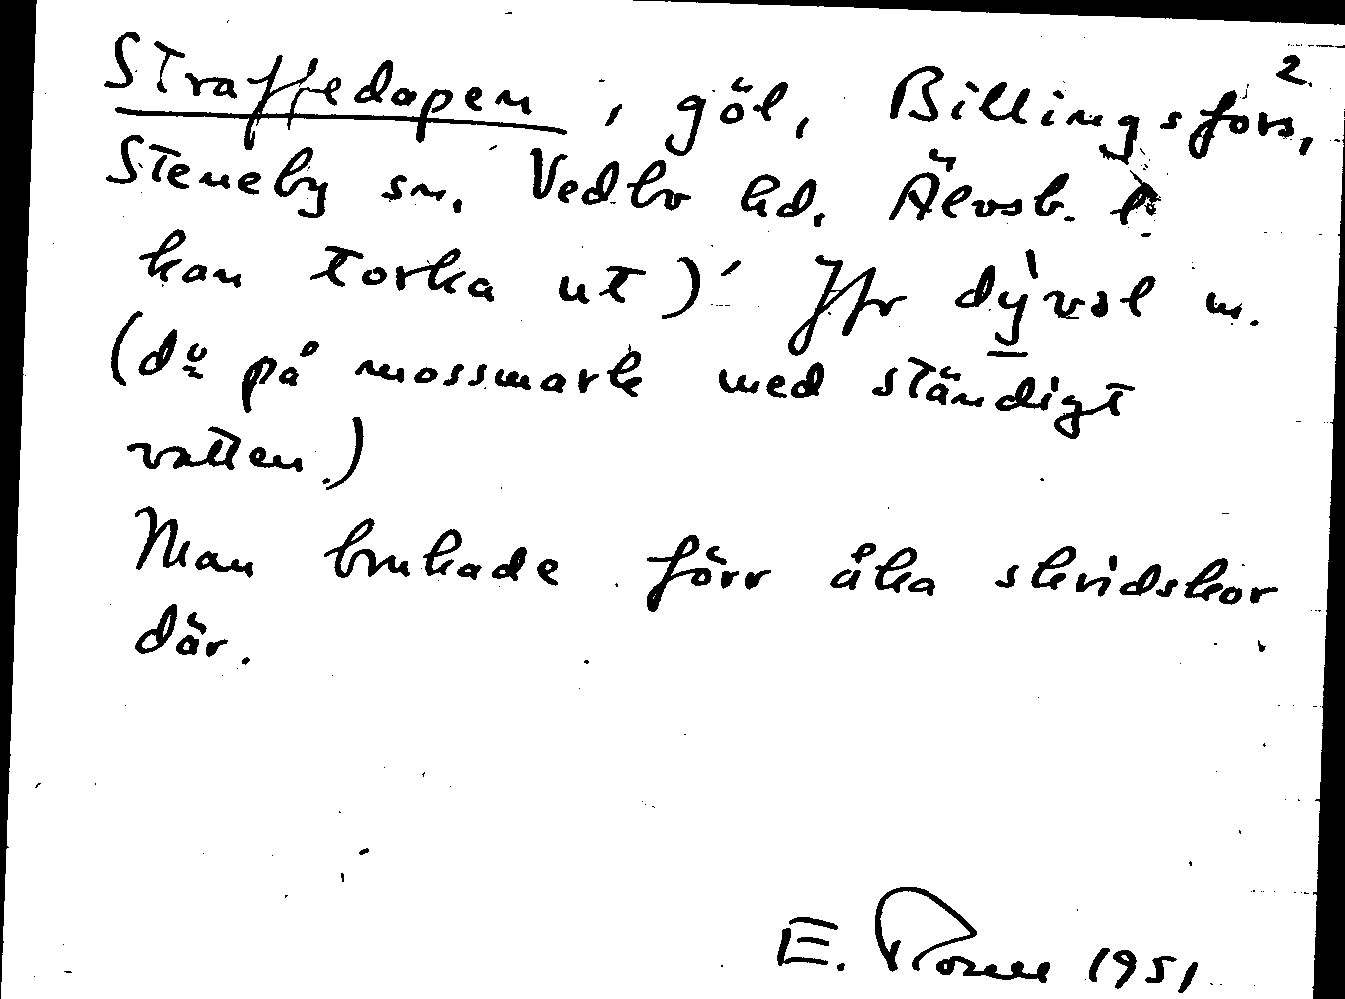 2.
Straffedapen, göl, Billingsfors,
Steneby sn, Vedbo hd, Älvsb. l
kan torka ut)' Jfr dy̍vǝl m.
(do på mossmark med ständigt
vatten.)
Man brukade förr åka skridskor
där.
E. 1951